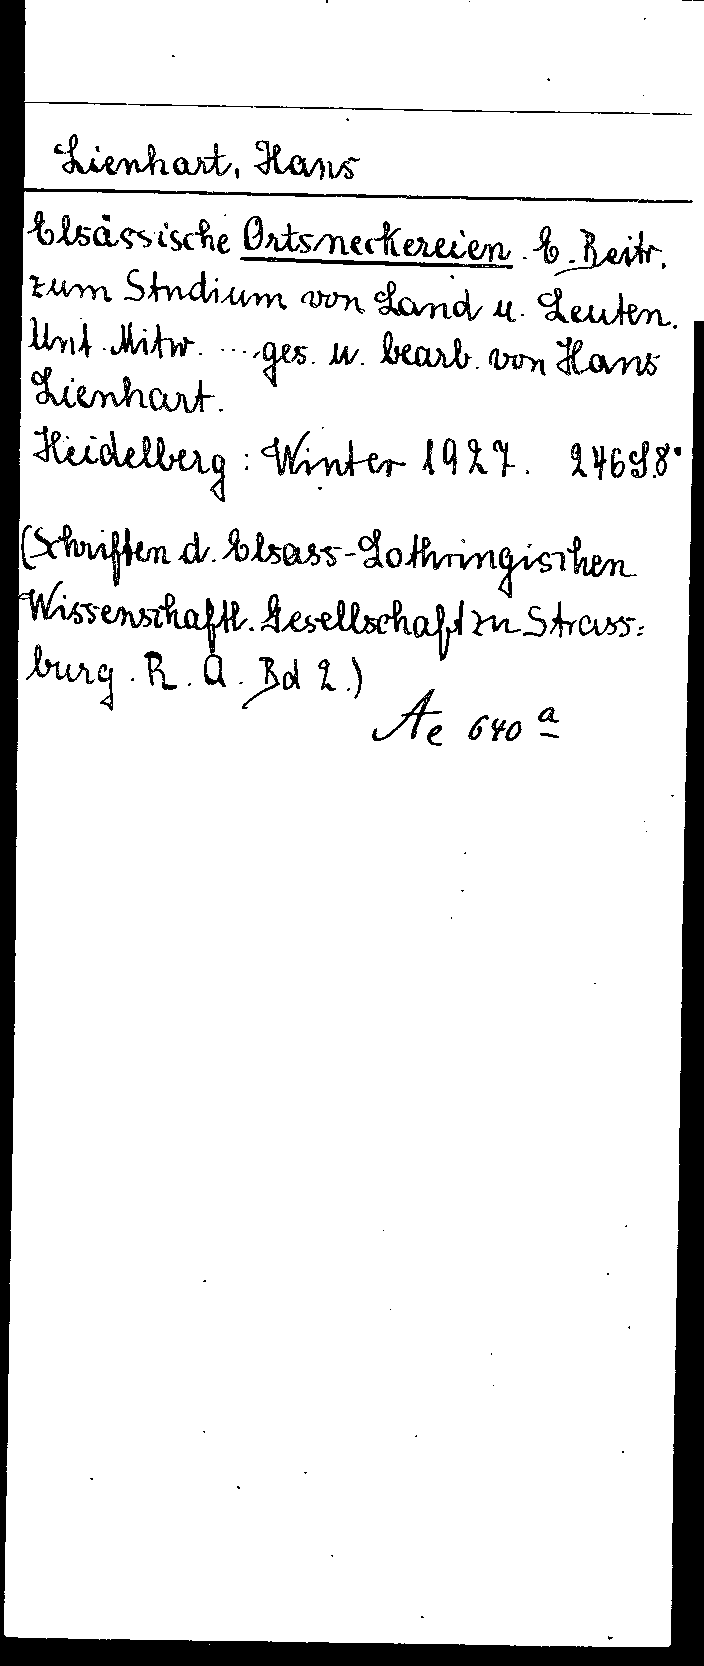 Lienhart, Hans
Elsässische Ortsneckereien. E. Beitr.
zum Studium von Land u. Leuten.
Unt. Mitw. ... ges. u. bearb. von Hans
Lienhart.
Heidelberg : Winter 1927. 246 S. 8°
(Schriften d. Elsass-Lothringischen
Wissenschaftl. Gesellschaft zu Strass=
burg. R. A. Bd 2.)
Ae 640 a